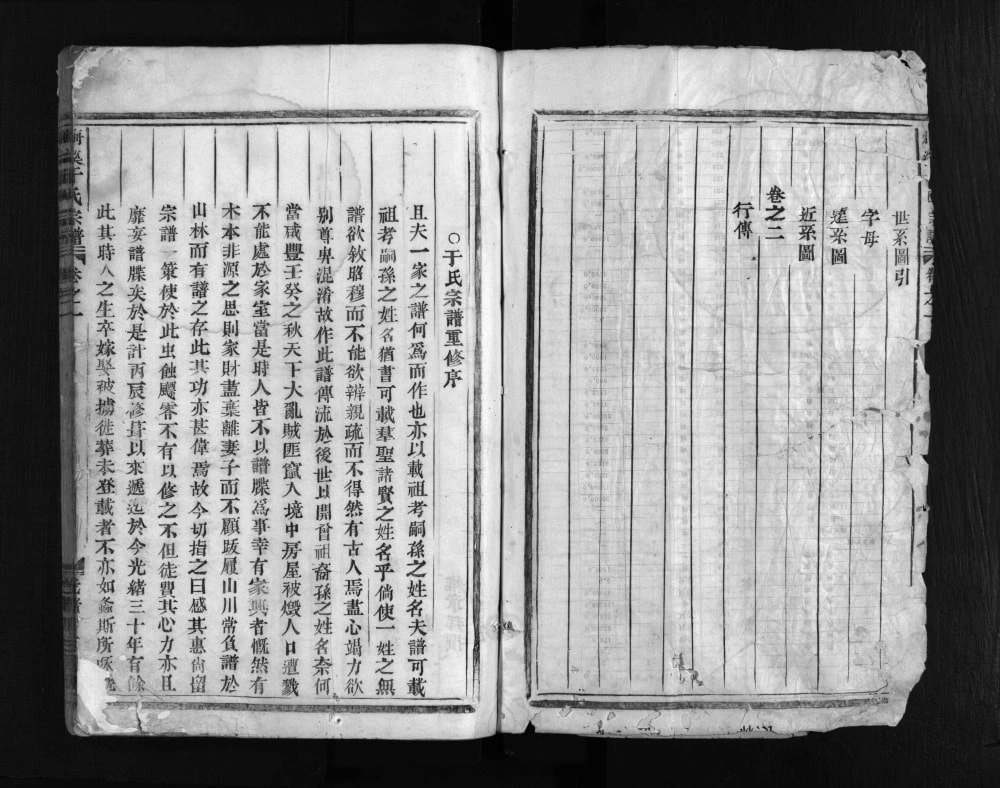 世系圖引
字母
遠系圖
近系圖
卷之二
行傳
○于氏宗譜重修序
且夫一家之譜何爲而作也亦以載祖考嗣孫之姓名夫譜可載
祖考嗣孫之姓名猶書可載羣聖諸賢之姓名乎倘使一姓之無
譜欲敘昭穆而不能欲辨親疏而不得然有古人焉盡心竭力欲
別尊卑混淆故作此譜傳流於後世以開曾祖裔孫之姓名奈何
當咸豐壬癸之秋天下大亂賊匪竄入境中房屋被燬人口遭戮
不能處於家室當是時人皆不以譜牒爲事幸有家興者慨然有
木本非源之思則家財盡棄離妻子而不顧跋履山川常負譜於
山林而有譜之存此其功亦甚偉焉故今切指之曰感其惠尙留
宗譜一策使於此虫蝕飄零不有以修之不但徒費其心力亦且
靡妄譜牒矣於是計丙辰修葺以來遞迄於今光緒三十年有餘
此其時人之生卒嫁娶被擄徙葬未登載者不亦如螽斯所
氏宗譜
卷之一